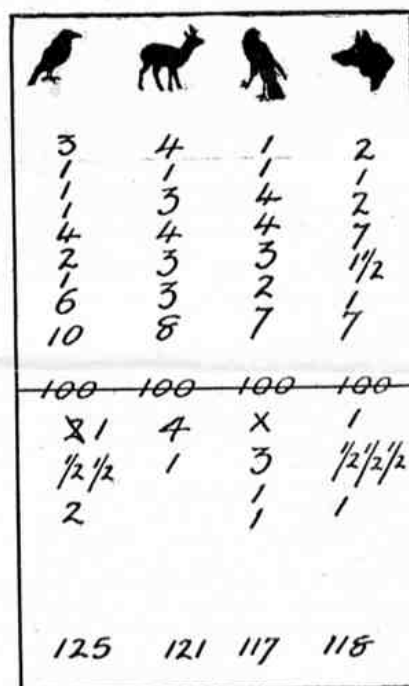 3 4 1 2
1 1 1 1
1 3 4 2
1 4 4 7
4 3 3 1 1/2
2 3 2 1
1 8 7 7
6
10
100 100 100 100
1 4 x 1
1/2 1/2 1 3 1/2 1/2 1/2
2 1 1
1
125 121 117 118